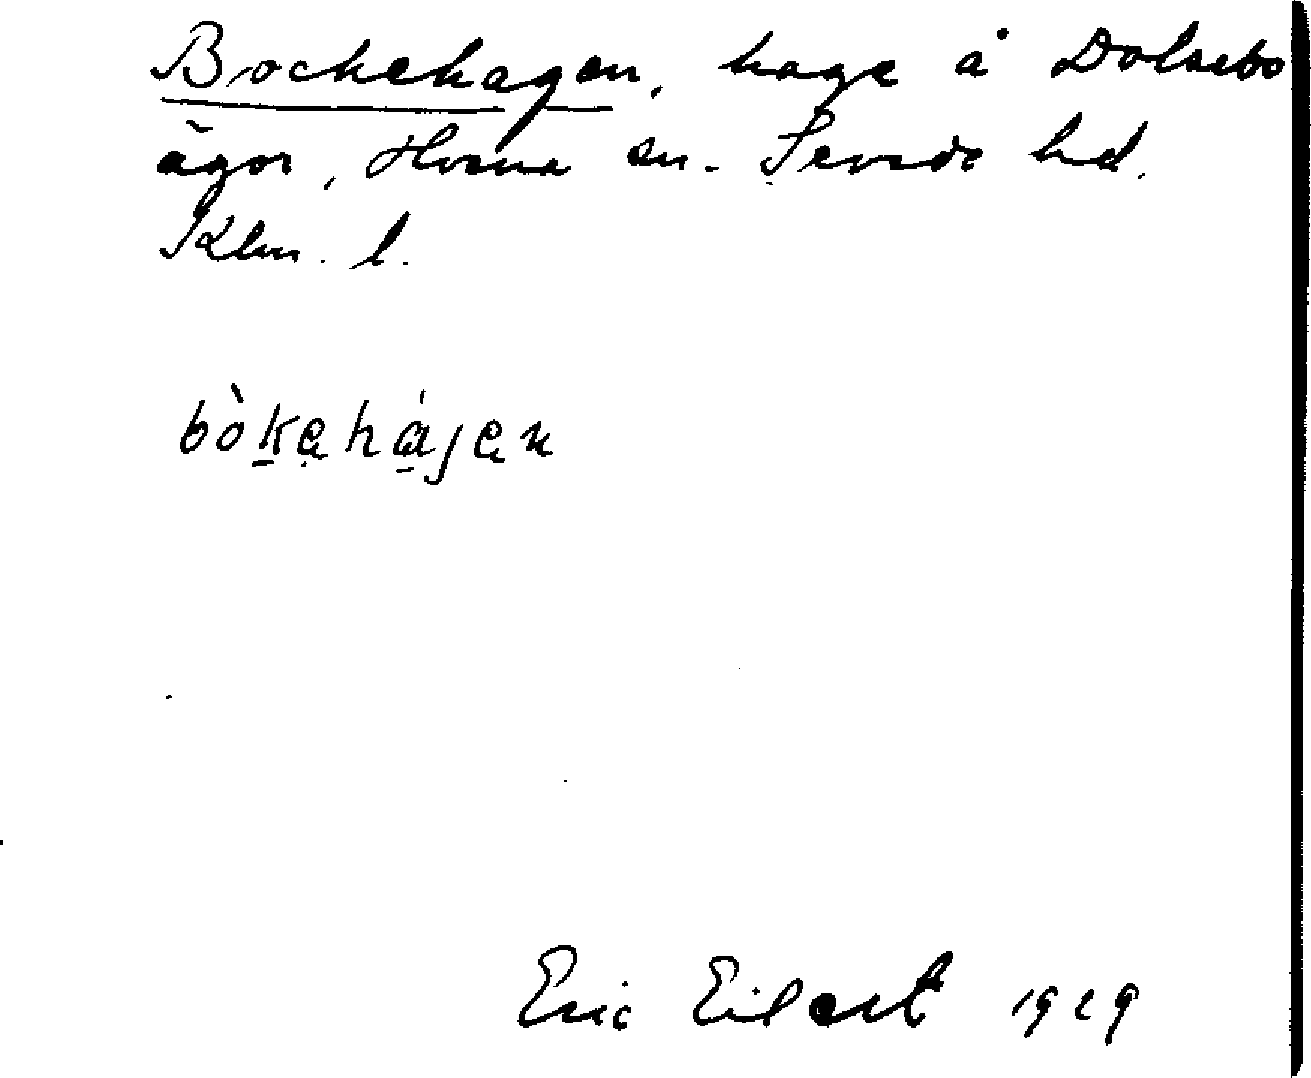 Bockehagen, hage å Dolsebo
ägor, Horna sn. Sevede hd.
Klm. l.
bòkeha̍jen
Eric Eilert 1929